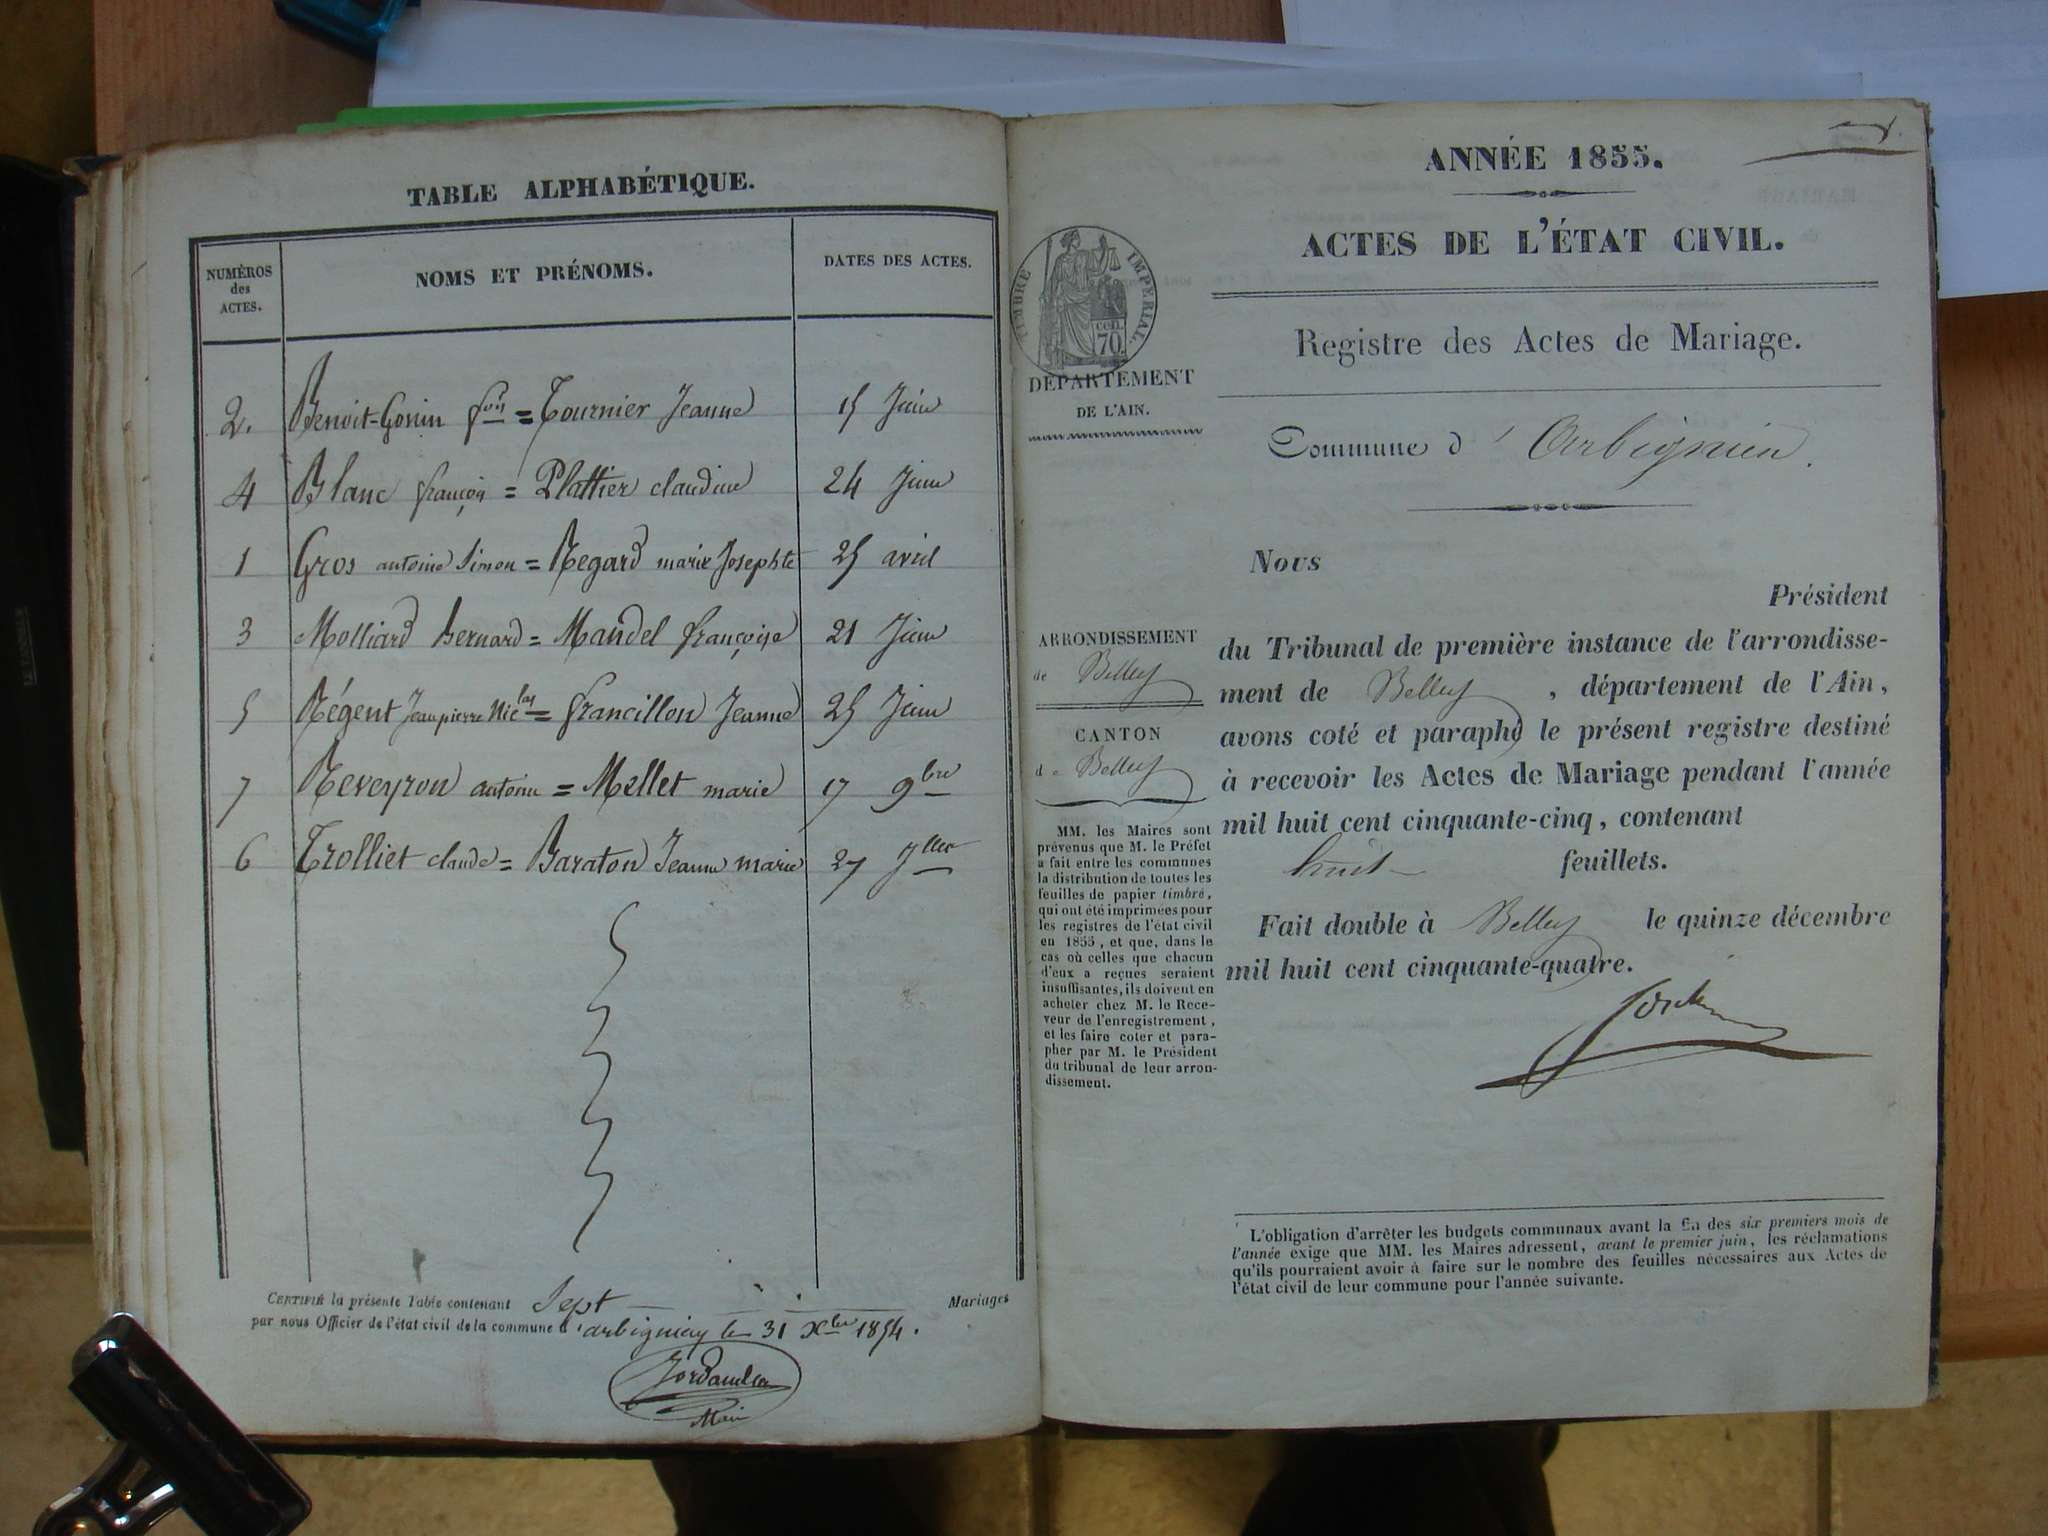 TABLE ALPHABÉTIQUE.
NUMÉROS
des
ACTES.
NOMS ET PRÉNOMS.
DATES DES ACTES.
2. Benoit-Gonin fois = Tournier Jeanne 15 Juin
4 Blanc françois = Plattier claudine 24 Juin
1 Gros antoine Simon = Regard marie Josephte 25 avril
3 Molliard Bernard = Mandel françoise 21 Juin
5 Régent Jean pierre Niclas = francillon Jeanne 25 Juin
7 Reveyron antoine = Mellet marie 17 9bre
6 Trolliet claude = Baraton Jeanne marie 27 Jller
CERTIFIÉ la présente Table contenant Sept Mariages
par nous Officier de l'état civil de la commune d'arbignieu le 31 Xbre 1854.
Maire
ANNÉE 1855.
ACTES DE L'ÉTAT CIVIL.
TIMBRE IMPÉRIAL.
cen.
70.
Registre des Actes de Mariage.
DÉPARTEMENT
DE L'AIN.
Commune d'Arbignieu.
Nous
Président
du Tribunal de première instance de l'arrondisse-
ment de Belley, département de l'Ain,
avons coté et paraphé le présent registre destiné
à recevoir les Actes de Mariage pendant l'année
mil huit cent cinquante-cinq, contenant
huit feuillets.
Fait double à Belley le quinze décembre
mil huit cent cinquante-quatre.
ARRONDISSEMENT
de Belley
CANTON
de Belley
MM. les Maires sont
prévenus que M. le Préfet
a fait entre les communes
la distribution de toutes les
feuilles de papier timbré,
qui ont été imprimées pour
les registres de l'état civil
en 1855, et que, dans le
cas où celles que chacun
d'eux a reçues seraient
insuffisantes, ils doivent en
acheter chez M. le Rece-
veur de l'enregistrement,
et les faire coter et para-
pher par M. le Président
du tribunal de leur arron-
dissement.
L'obligation d'arrêter les budgets communaux avant la fin des six premiers mois de
l'année exige que MM. les Maires adressent, avant le premier juin, les réclamations
qu'ils pourraient avoir à faire sur le nombre des feuilles nécessaires aux Actes de
l'état civil de leur commune pour l'année suivante.